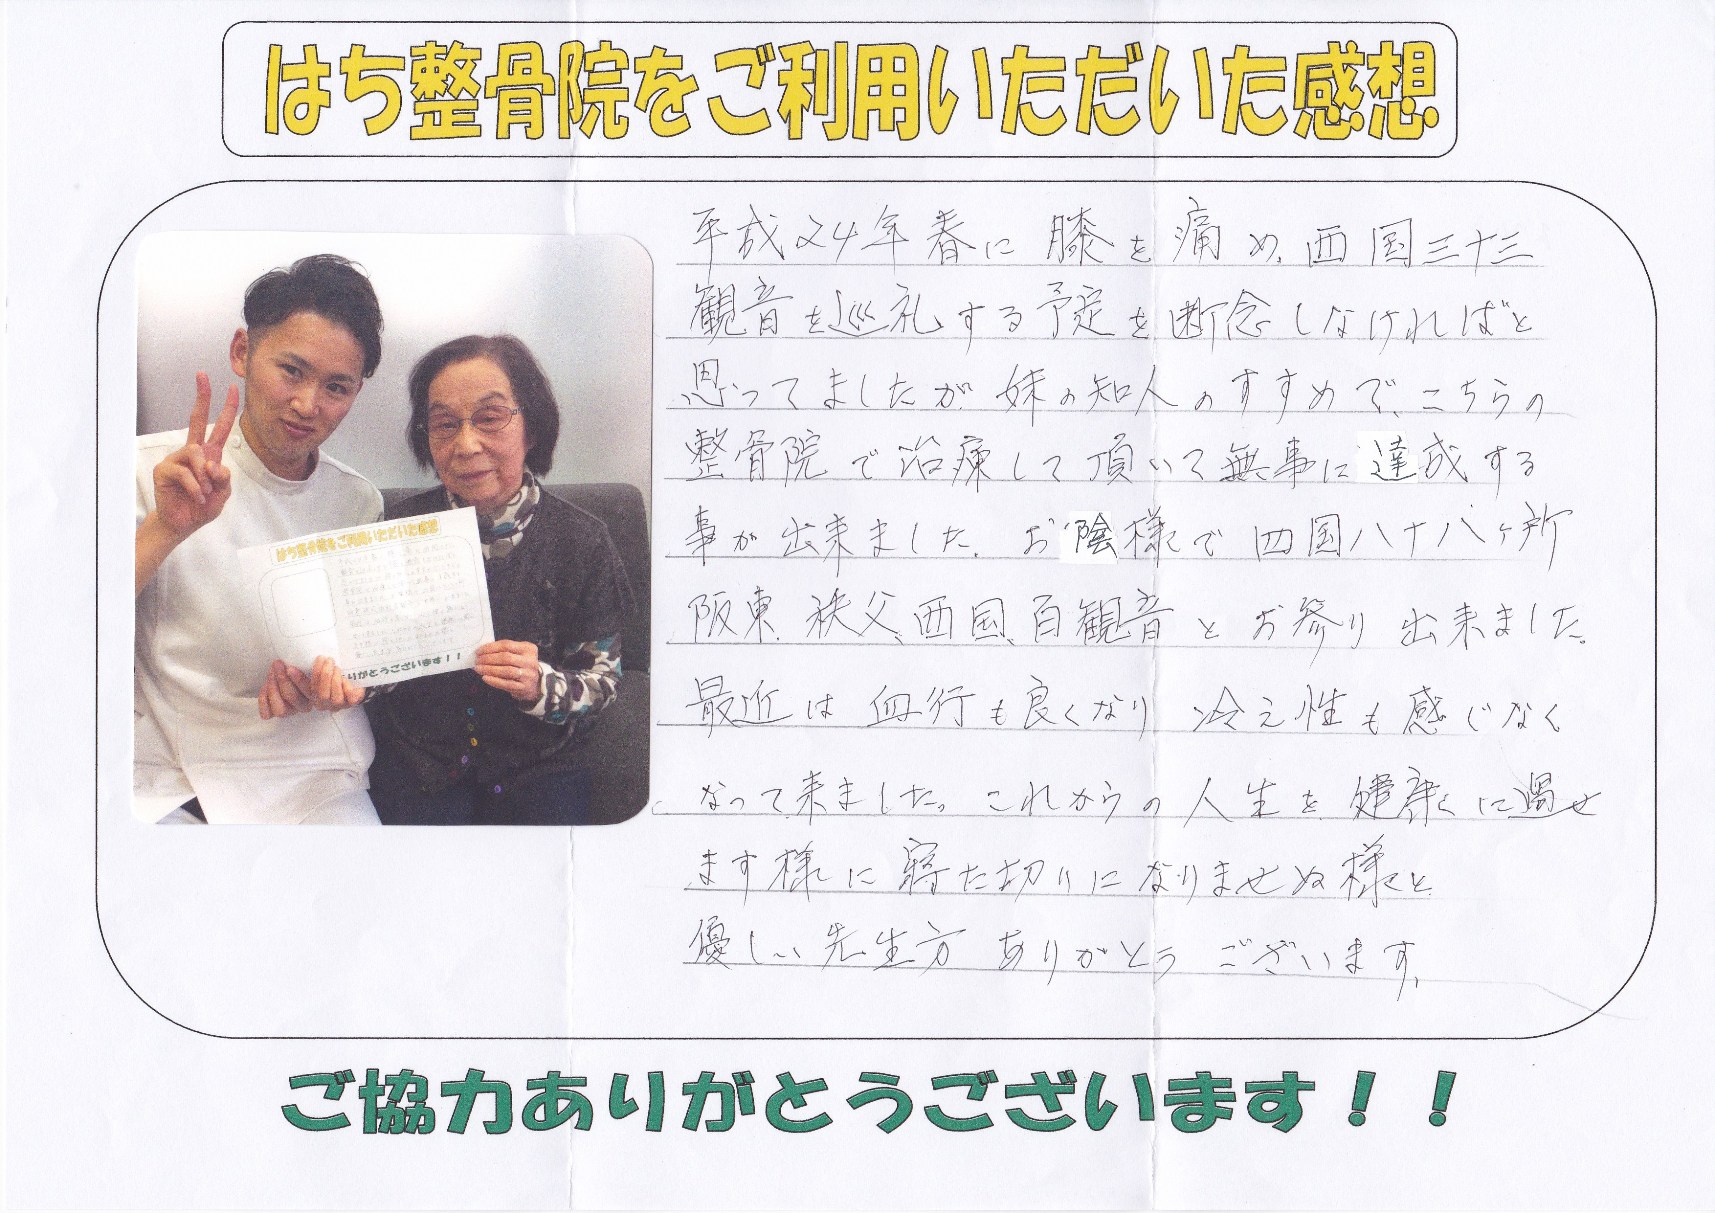 はち整骨院をご利用いただいた感想
平成24年春に膝を痛め、西国三十三
観音を巡礼する予定を断念しなければと
思ってましたが妹の知人のすすめで、こちらの
整骨院で治療して頂いて無事に達成する
事が出来ました。お陰様で四国八十八ヶ所
阪東、秩父、西国、百観音とお参り出来ました。
最近は血行も良くなり冷え性も感じなく
なって来ました。これからの人生を健康に過せ
ます様に寝た切りになりませぬ様と
優しい先生方ありがとうございます。
はち整骨院をご利用いただいた感想
りがとうございます！！
ご協力ありがとうございます！！